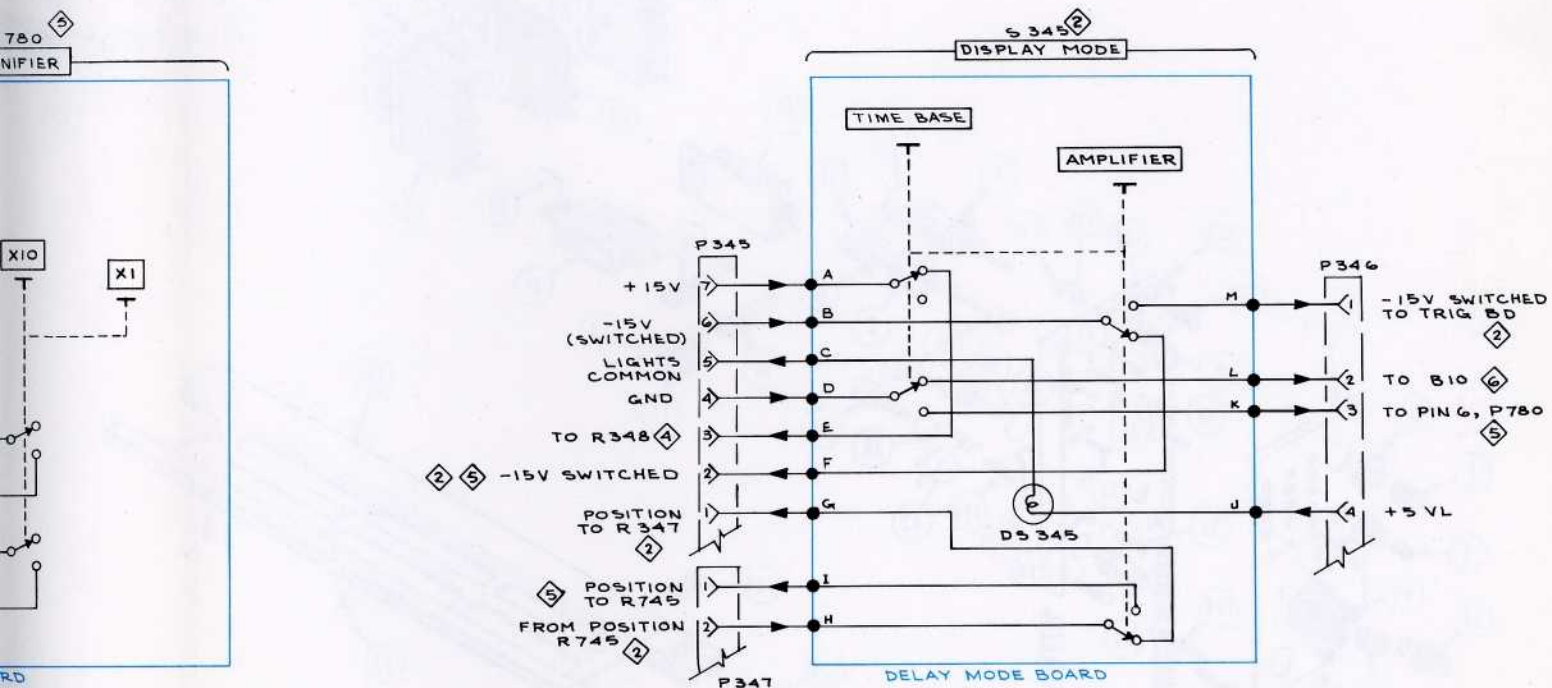 5
780
NIFIER
X10
X1
RD
S 345 2
DISPLAY MODE
TIME BASE
AMPLIFIER
P345
+15V 7 A
-15V
(SWITCHED) 6 B
LIGHTS
COMMON 5 C
GND 4 D
TO R348 4 3 E
2 5 -15V SWITCHED 2 F
POSITION
TO R347 1 G
2
5 POSITION
TO R745 1 I
FROM POSITION
R745 2 2 H
P347
DS 345
P346
M 1 -15V SWITCHED
TO TRIG BD
2
L 2 TO B10 6
K 3 TO PIN 6, P780
5
J 4 +5 VL
DELAY MODE BOARD